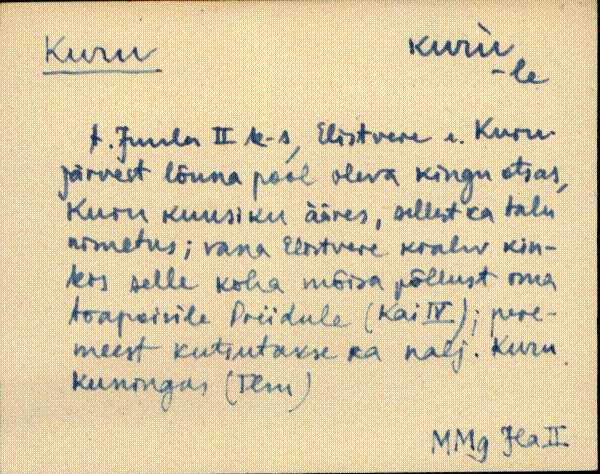 Kuru
kuru
-le
t. Juula II k-s, Elistvere e. Kuru
järvest lõuna pool oleva kingu otsas,
Kuru kuusiku ääres, sellest ka talu
nimetus; vana Elistvere krahv kin-
kis selle koha mõisa põllust oma
toapoisile Priidule (Kai IV); pere-
meest kutsutakse ka nalj. Kuru
kuningas (Ilm)
MMg Jla II